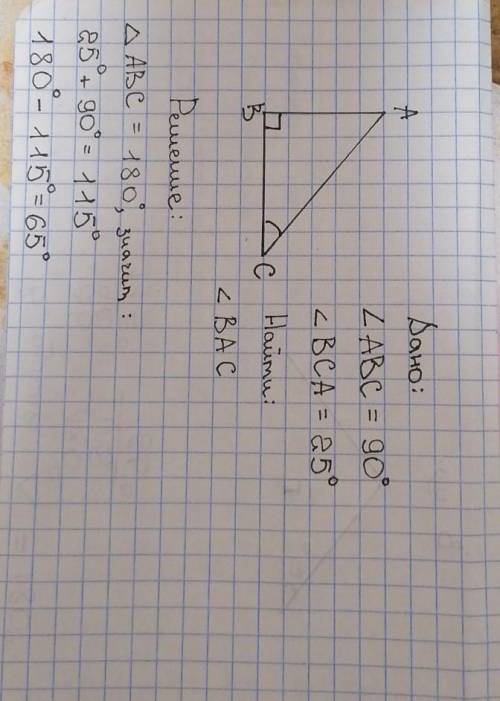 A
B
C
Дано:
∠ABC = 90°
∠BCA = 25°
Найти:
∠BAC
Решение:
△ABC = 180°, значит:
25° + 90° = 115°
180° - 115° = 65°